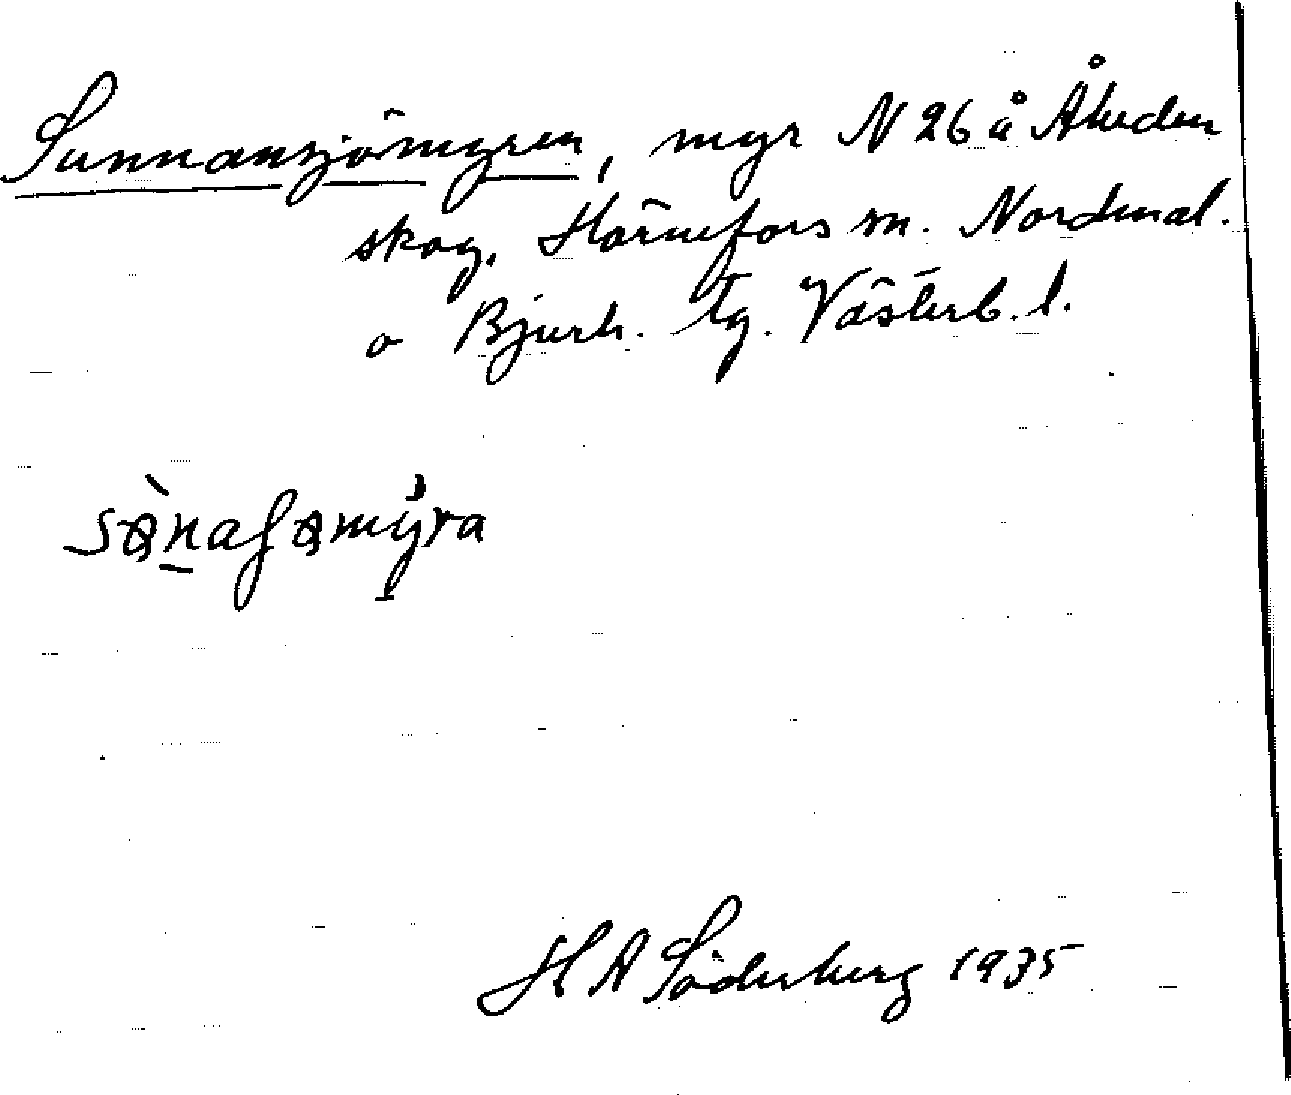 Sunnansjömyren, myr N 26 å Åheden
skog. Hörnefors sn. Nordmal.
o Bjurh. tg. Västerb. l.
H A Söderberg 1935